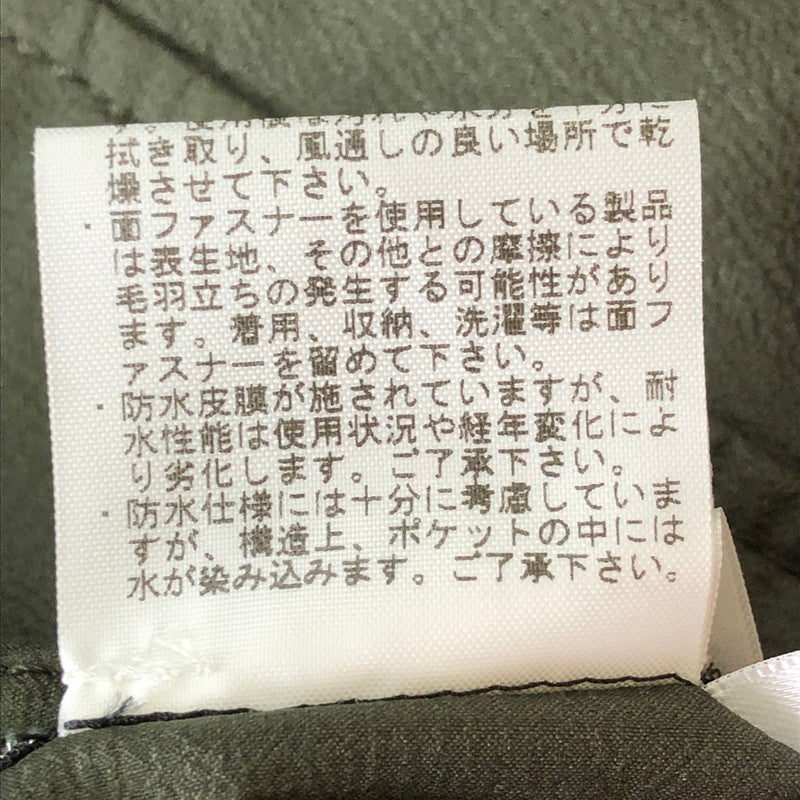 拭き取り、風通しの良い場所で乾
燥させて下さい。
・面ファスナーを使用している製品
は表生地、その他との摩擦により
毛羽立ちの発生する可能性があり
ます。着用、収納、洗濯等は面フ
ァスナーを留めて下さい。
・防水皮膜が施されていますが、耐
水性能は使用状況や経年変化によ
り劣化します。ご了承下さい。
・防水仕様には十分に考慮していま
すが、構造上、ポケットの中には
水が染み込みます。ご了承下さい。